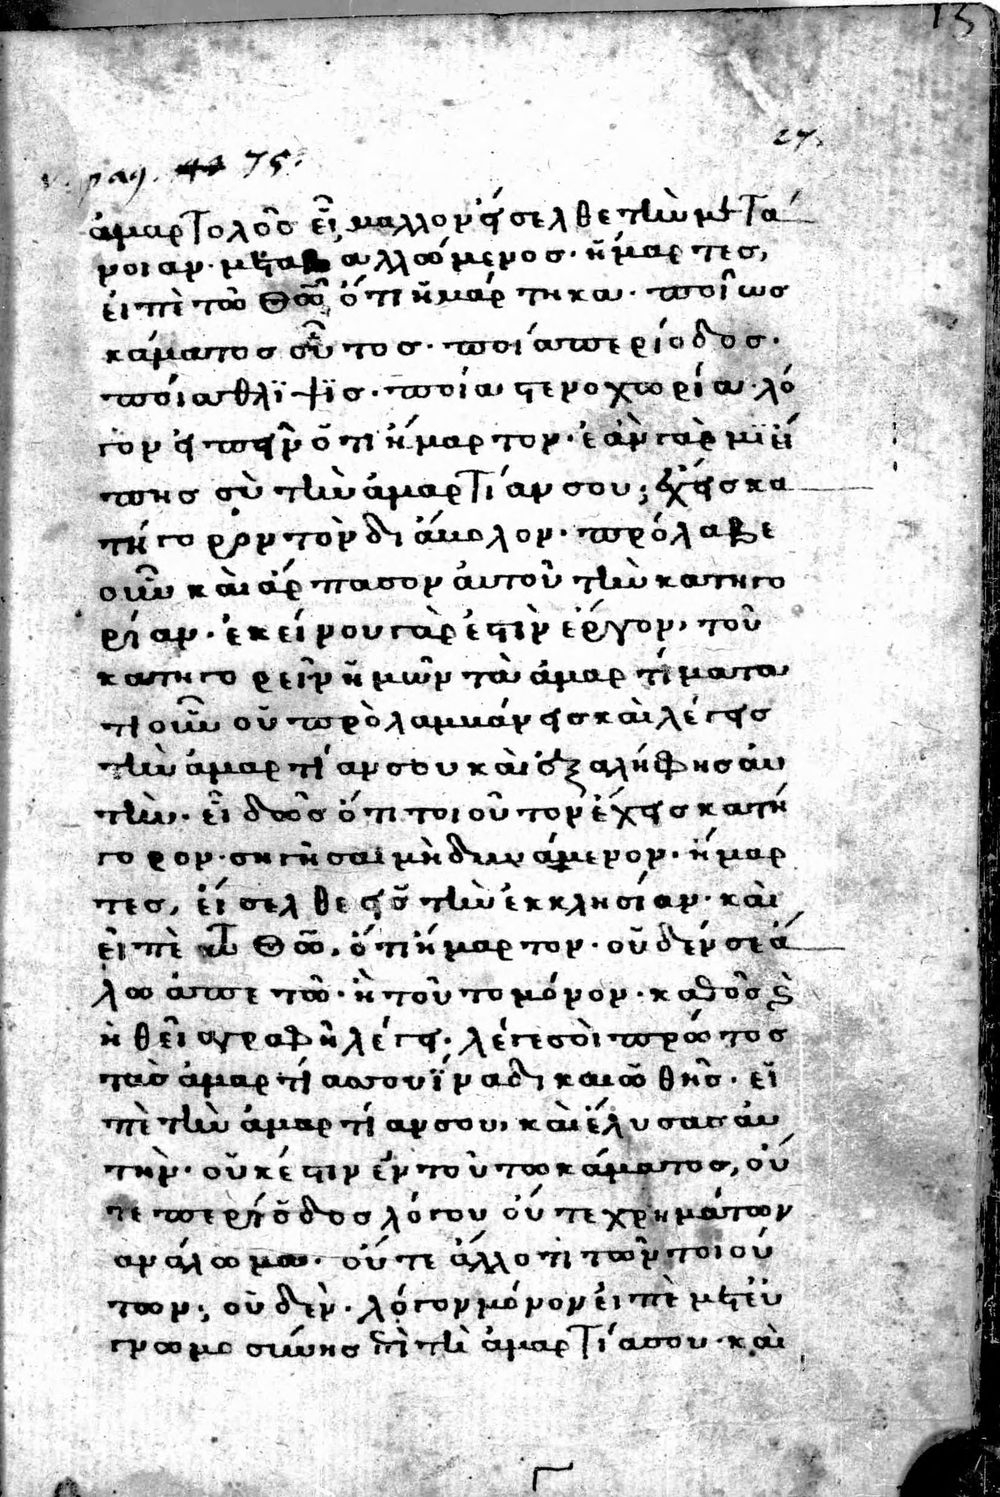 15
27.
v. pag. 44 75.
ἁμαρτολὸσ εἶ, μαλλον εἴσελθε τὴν μετά
νοιαν· μεταβαλλώμενοσ· ἥμαρτεσ,
εἰπὲ τῶ Θῶ, ὅτι ἥμάρτηκα· ποῖωσ
κάματοσ οὗτοσ· ποία περίοδοσ·
ποία θλίψϊσ· ποία στενοχωρία· λό
γον εἰπεῖν ὅτι ἥμαρτον· ἐὰν γὰρ μὴ εἴ
πησ σὺ τὴν ἁμαρτίαν σου; ἔχεισ κα
τήγορον τὸν διάμολον· πρόλαβε
οὖν καὶ ἅρπασον ἀυτοῦ τὴν κατηγο
ρίαν· ἐκείνου γὰρ ἐστὶν ἔργον, τοῦ
κατηγορεῖν ἥμῶν τὰ ἁμαρτίματα
τί οὖν οὔ πρὸλαμμάνεισ καὶ λέγεισ
τὴν ἁμαρτίαν σου καὶ ἐξαλήφησ ἀυ
τὴν· εἶδὼσ ὅτι τοιοῦτον ἔχεισ κατή
γορον· σηγῆσαι μὴ δυνάμενον· ἥμαρ
τεσ, εἴσελθε εἰσ τὴν ἐκκλησίαν· καὶ
εἰπὲ τῶ Θῶ, ὅτι ἥμαρτον· οὔδέν σε ἄ
λω ἀπετῶ· ἢ τοῦτο μόνον· καθὼσ καὶ
ἡ θεῖα γραφὴ λέγει· λέγε σὺ πρῶτοσ
τὰσ ἁμαρτίασ σου ἵνα δικαιωθῆσ· εἴ
πὲ τὴν ἁμαρτίαν σου, καὶ ἔλυσασ ἀυ
τὴν· οὔκ ἔστιν ἐν τούτω κάματοσ, οὔ
τε περίοδοσ λόγου οὔτε χρημάτων
ανάλωμα· οὔτε ἄλλο τι τῶν τοιού
των; οὐδὲν· λόγον μόνον εἰπὲ μετ εὐ
γνωμοσύνησ ἐπὶ τὶ ἁμαρτία σου· καὶ